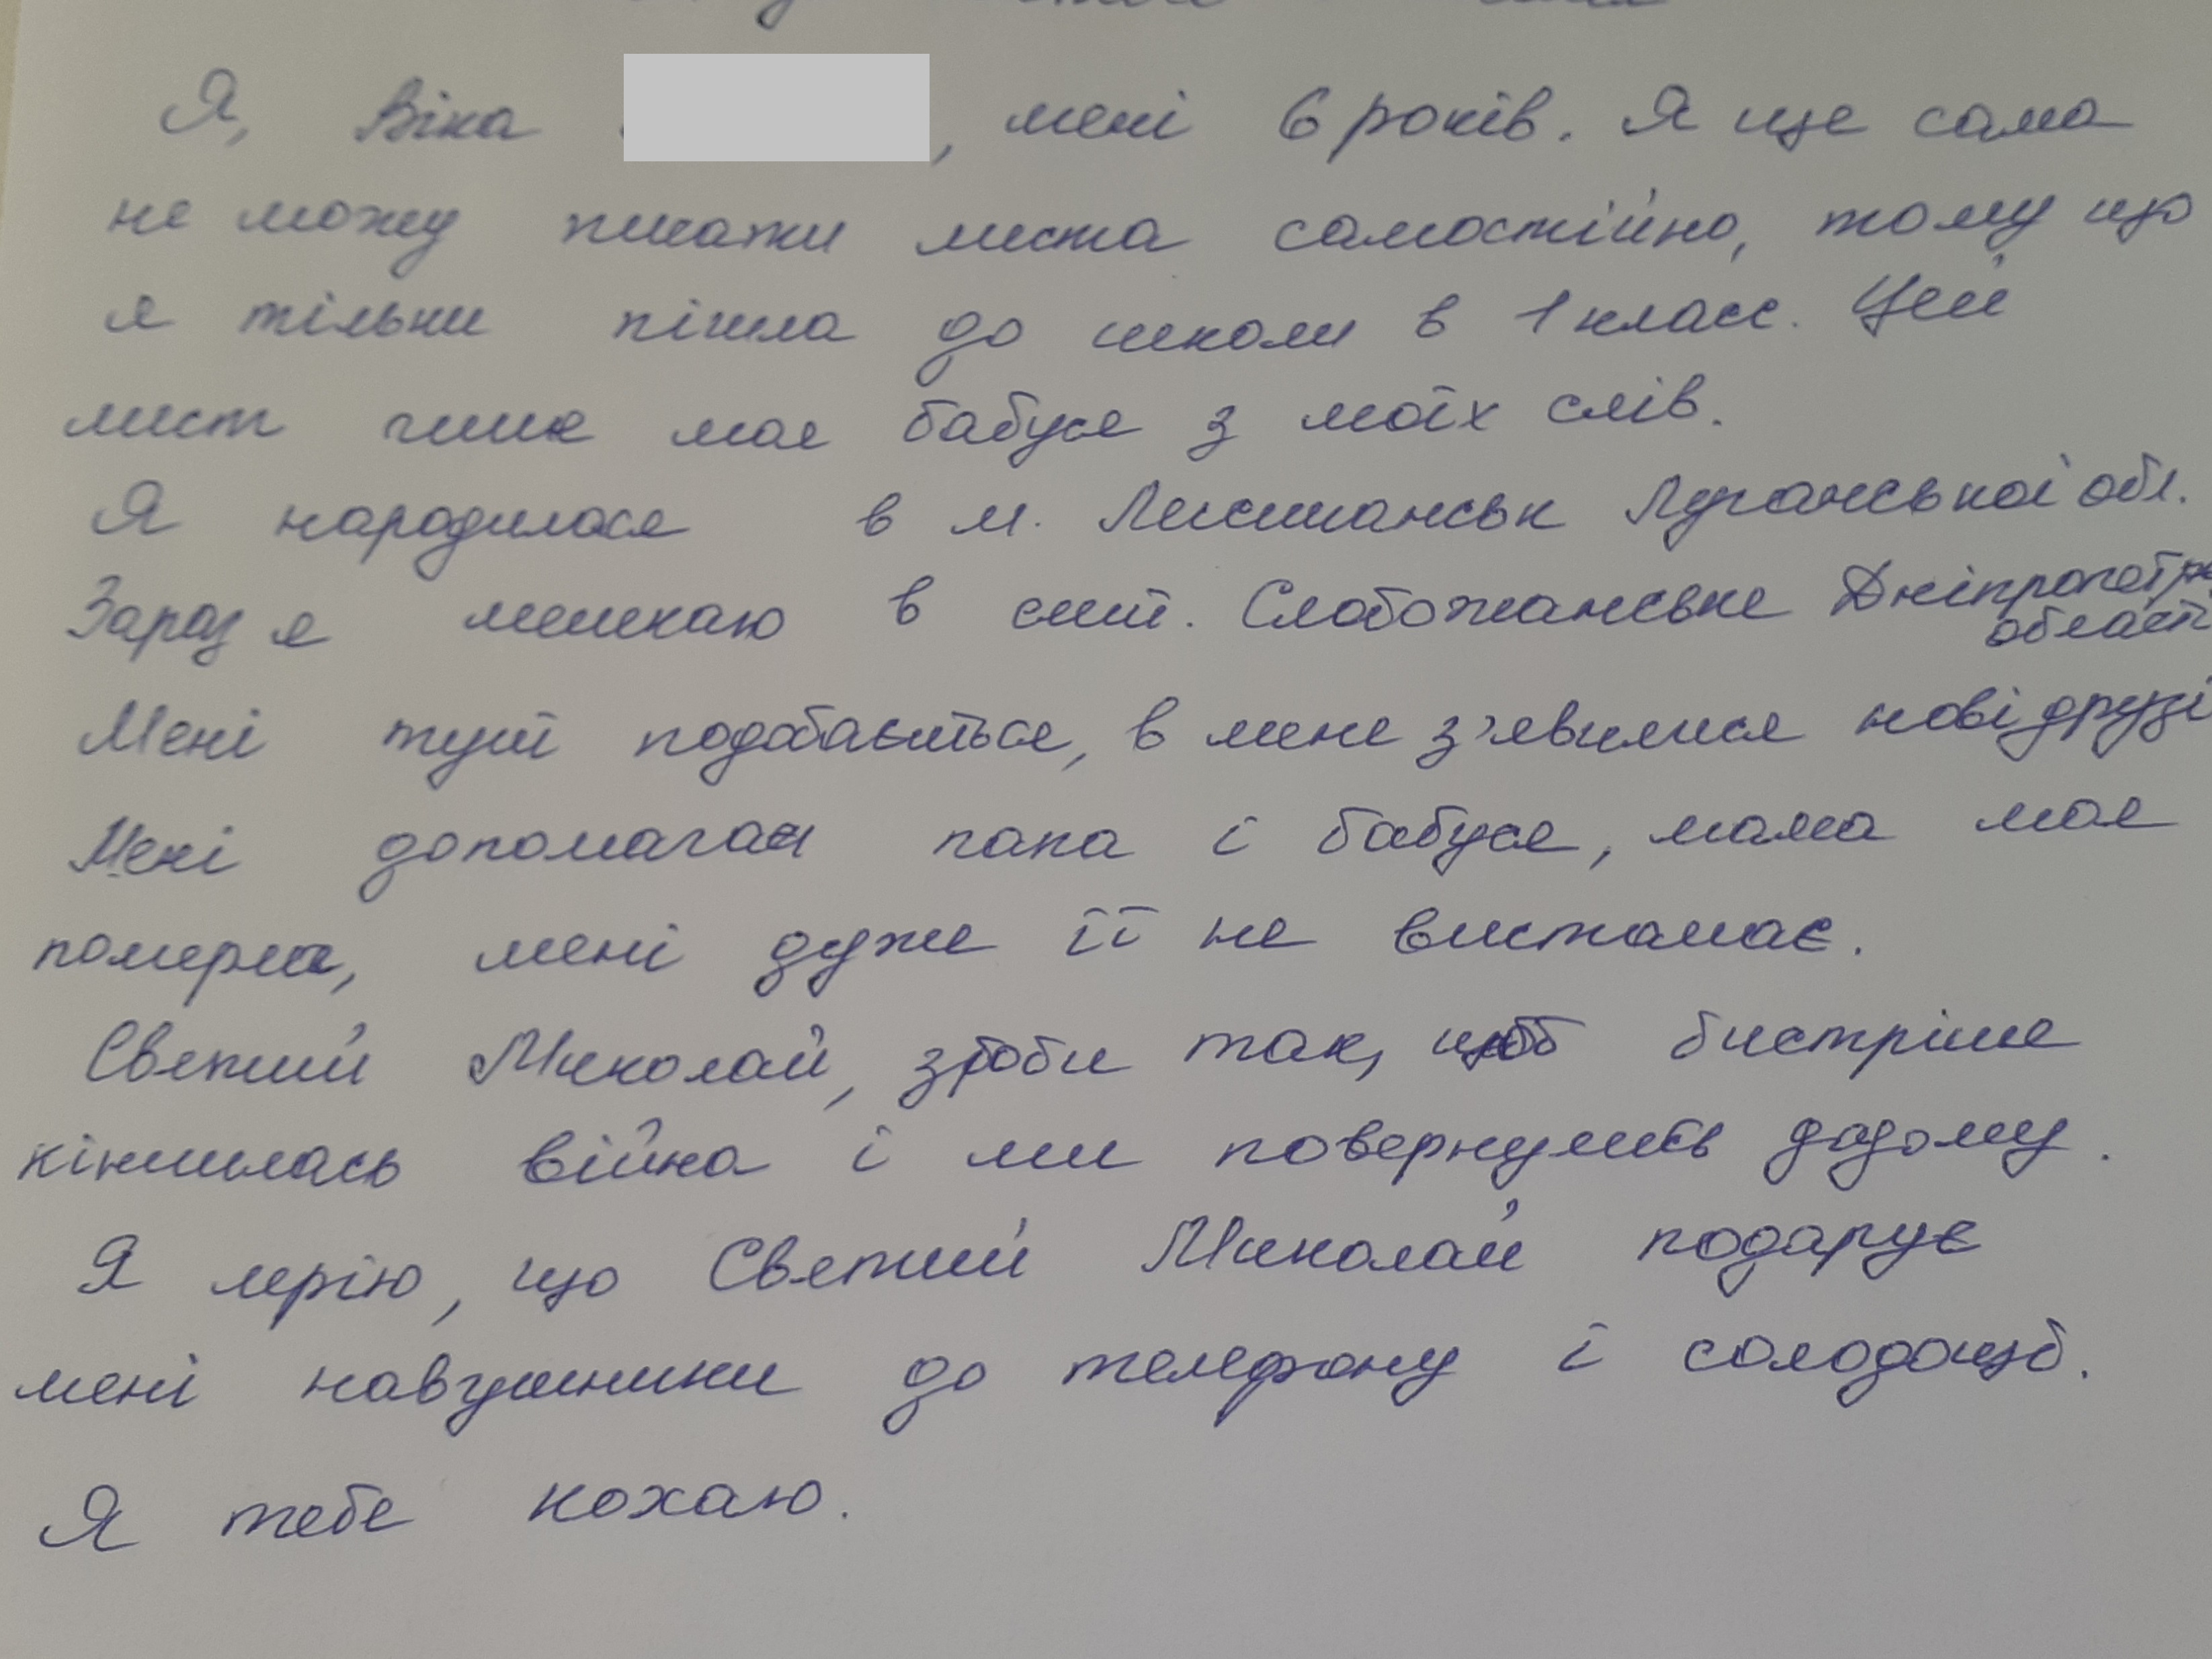 Я, Віка , мені 6 років. Я ще сама
не можу писати листа самостійно, тому що
я тільки пішла до школи в 1 класс. Цей
лист пише моя бабуся з моїх слів.
Я народилася в м. Лисичанськ Луганської обл.
Зараз я мешкаю в смт. Слобожанське Дніпропетр
області
Мені тут подобається, в мене з'явилися нові друзі
Мені допомагає папа і бабуся, мама моя
померла, мені дуже її не вистачає.
Святий Миколай, зроби так, щоб бистріше
кінчилась війна і ми повернулись додому.
Я мрію, що Святий Миколай подарує
мені навушники до телефону і солодощів.
Я тебе кохаю.